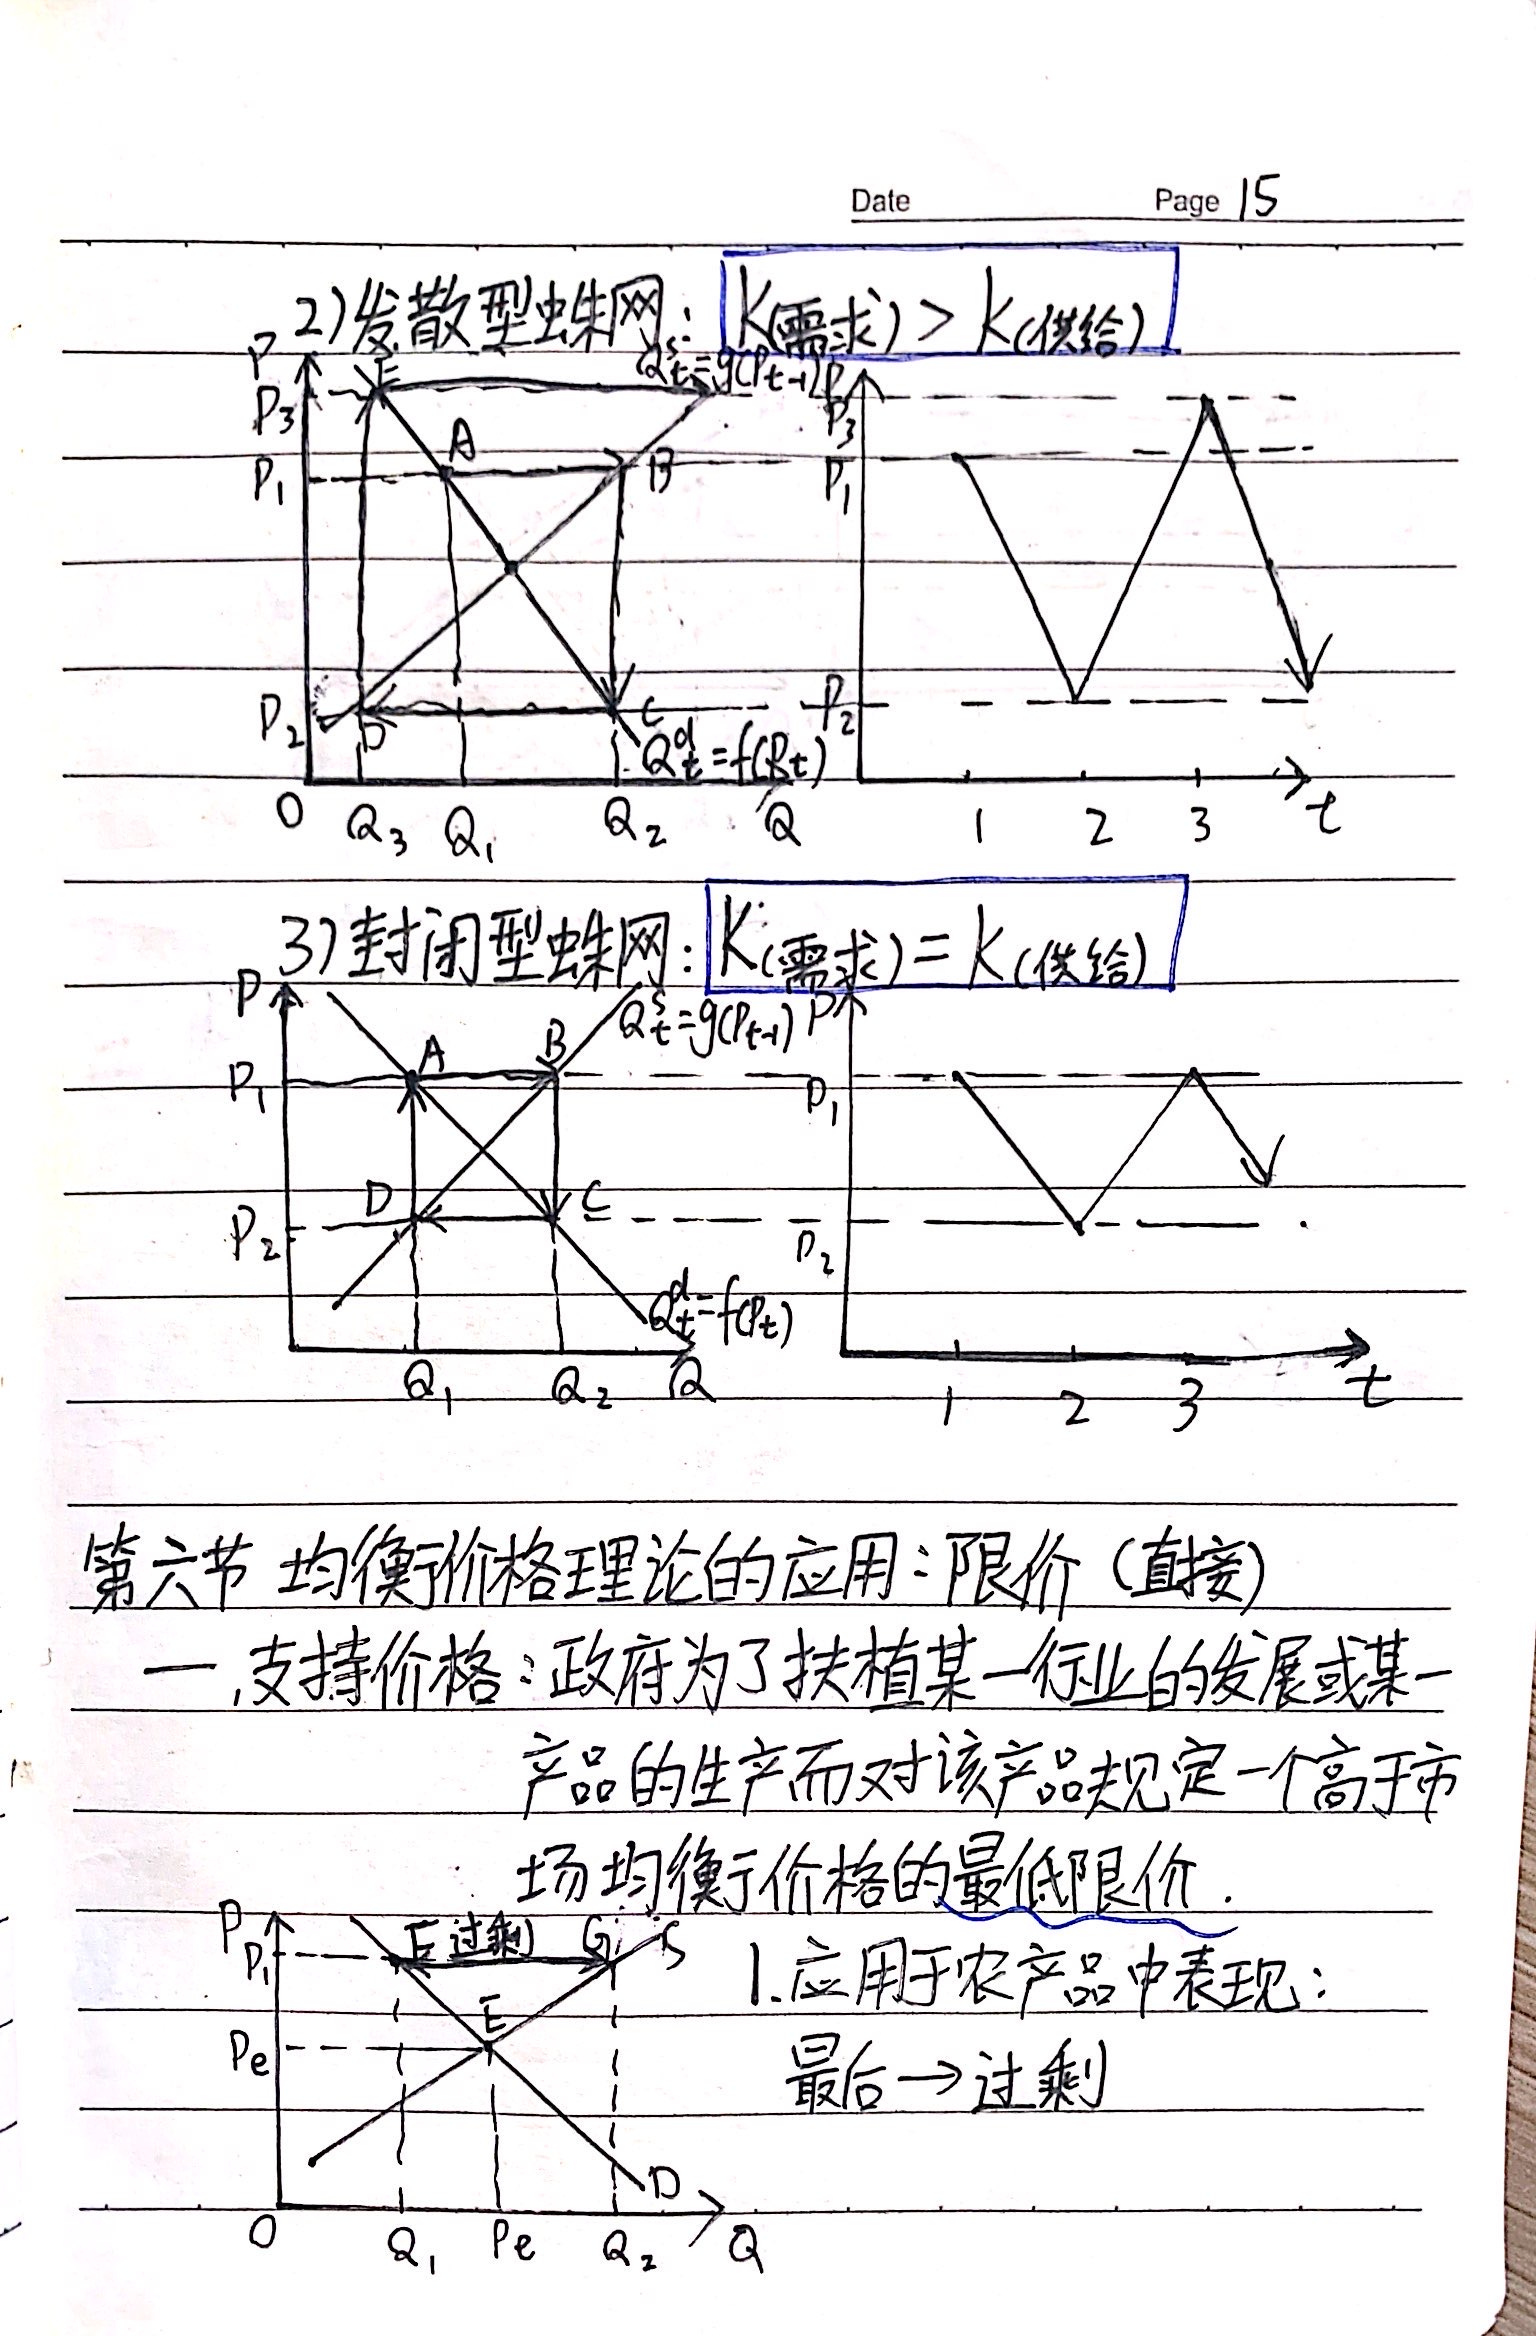 Date Page 15
2)发散型蛛网: K(需求) > K(供给)
P E Q^s_t=g(P_{t-1}) P
P3 P3
A
P1 B P1
P2 D C P2
Q^d_t=f(P_t)
O Q3 Q1 Q2 Q 1 2 3 t
3)封闭型蛛网: K(需求) = K(供给)
P Q^s_t=g(P_{t-1}) P
A B
P1 P1
D C
P2 P2
Q^d_t=f(P_t)
Q1 Q2 Q 1 2 3 t
第六节 均衡价格理论的应用:限价 (直接)
一.支持价格:政府为了扶植某一行业的发展或某一
产品的生产而对该产品规定一个高于市
场均衡价格的最低限价.
P 过剩 G S
P1 1.应用于农产品中表现:
E
Pe 最后→过剩
D
O Q1 Pe Q2 Q